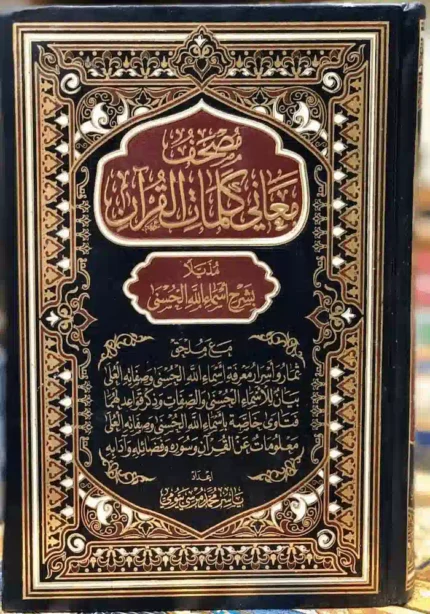 مُصْحَفُ
مَعَانِي كَلِمَاتِ القُرْآنِ
مُذَيَّلًا
بِشَرْحِ أَسْمَاءِ اللَّهِ الحُسْنَى
مَعَ مُلْحَقِ
ثِمَارُ وَأَسْرَارُ مَعْرِفَةِ أَسْمَاءِ اللَّهِ الحُسْنَى وَصِفَاتِهِ العُلَى
بَيَانٌ لِلأَسْمَاءِ الحُسْنَى وَالصِّفَاتِ وَذِكْرُ قَوَاعِدَ لَهُمَا
فَتَاوَى خَاصَّة بِأَسْمَاءِ اللَّهِ الحُسْنَى وَصِفَاتِهِ العُلَى
مَعْلُومَات عَنِ القُرْآنِ وَسُوَرِهِ وَفَضَائِلِهِ وَآدَابِهِ
إِعْدَاد
يَاسِر مُحَمَّد مُرْسِي بَيُّومِي